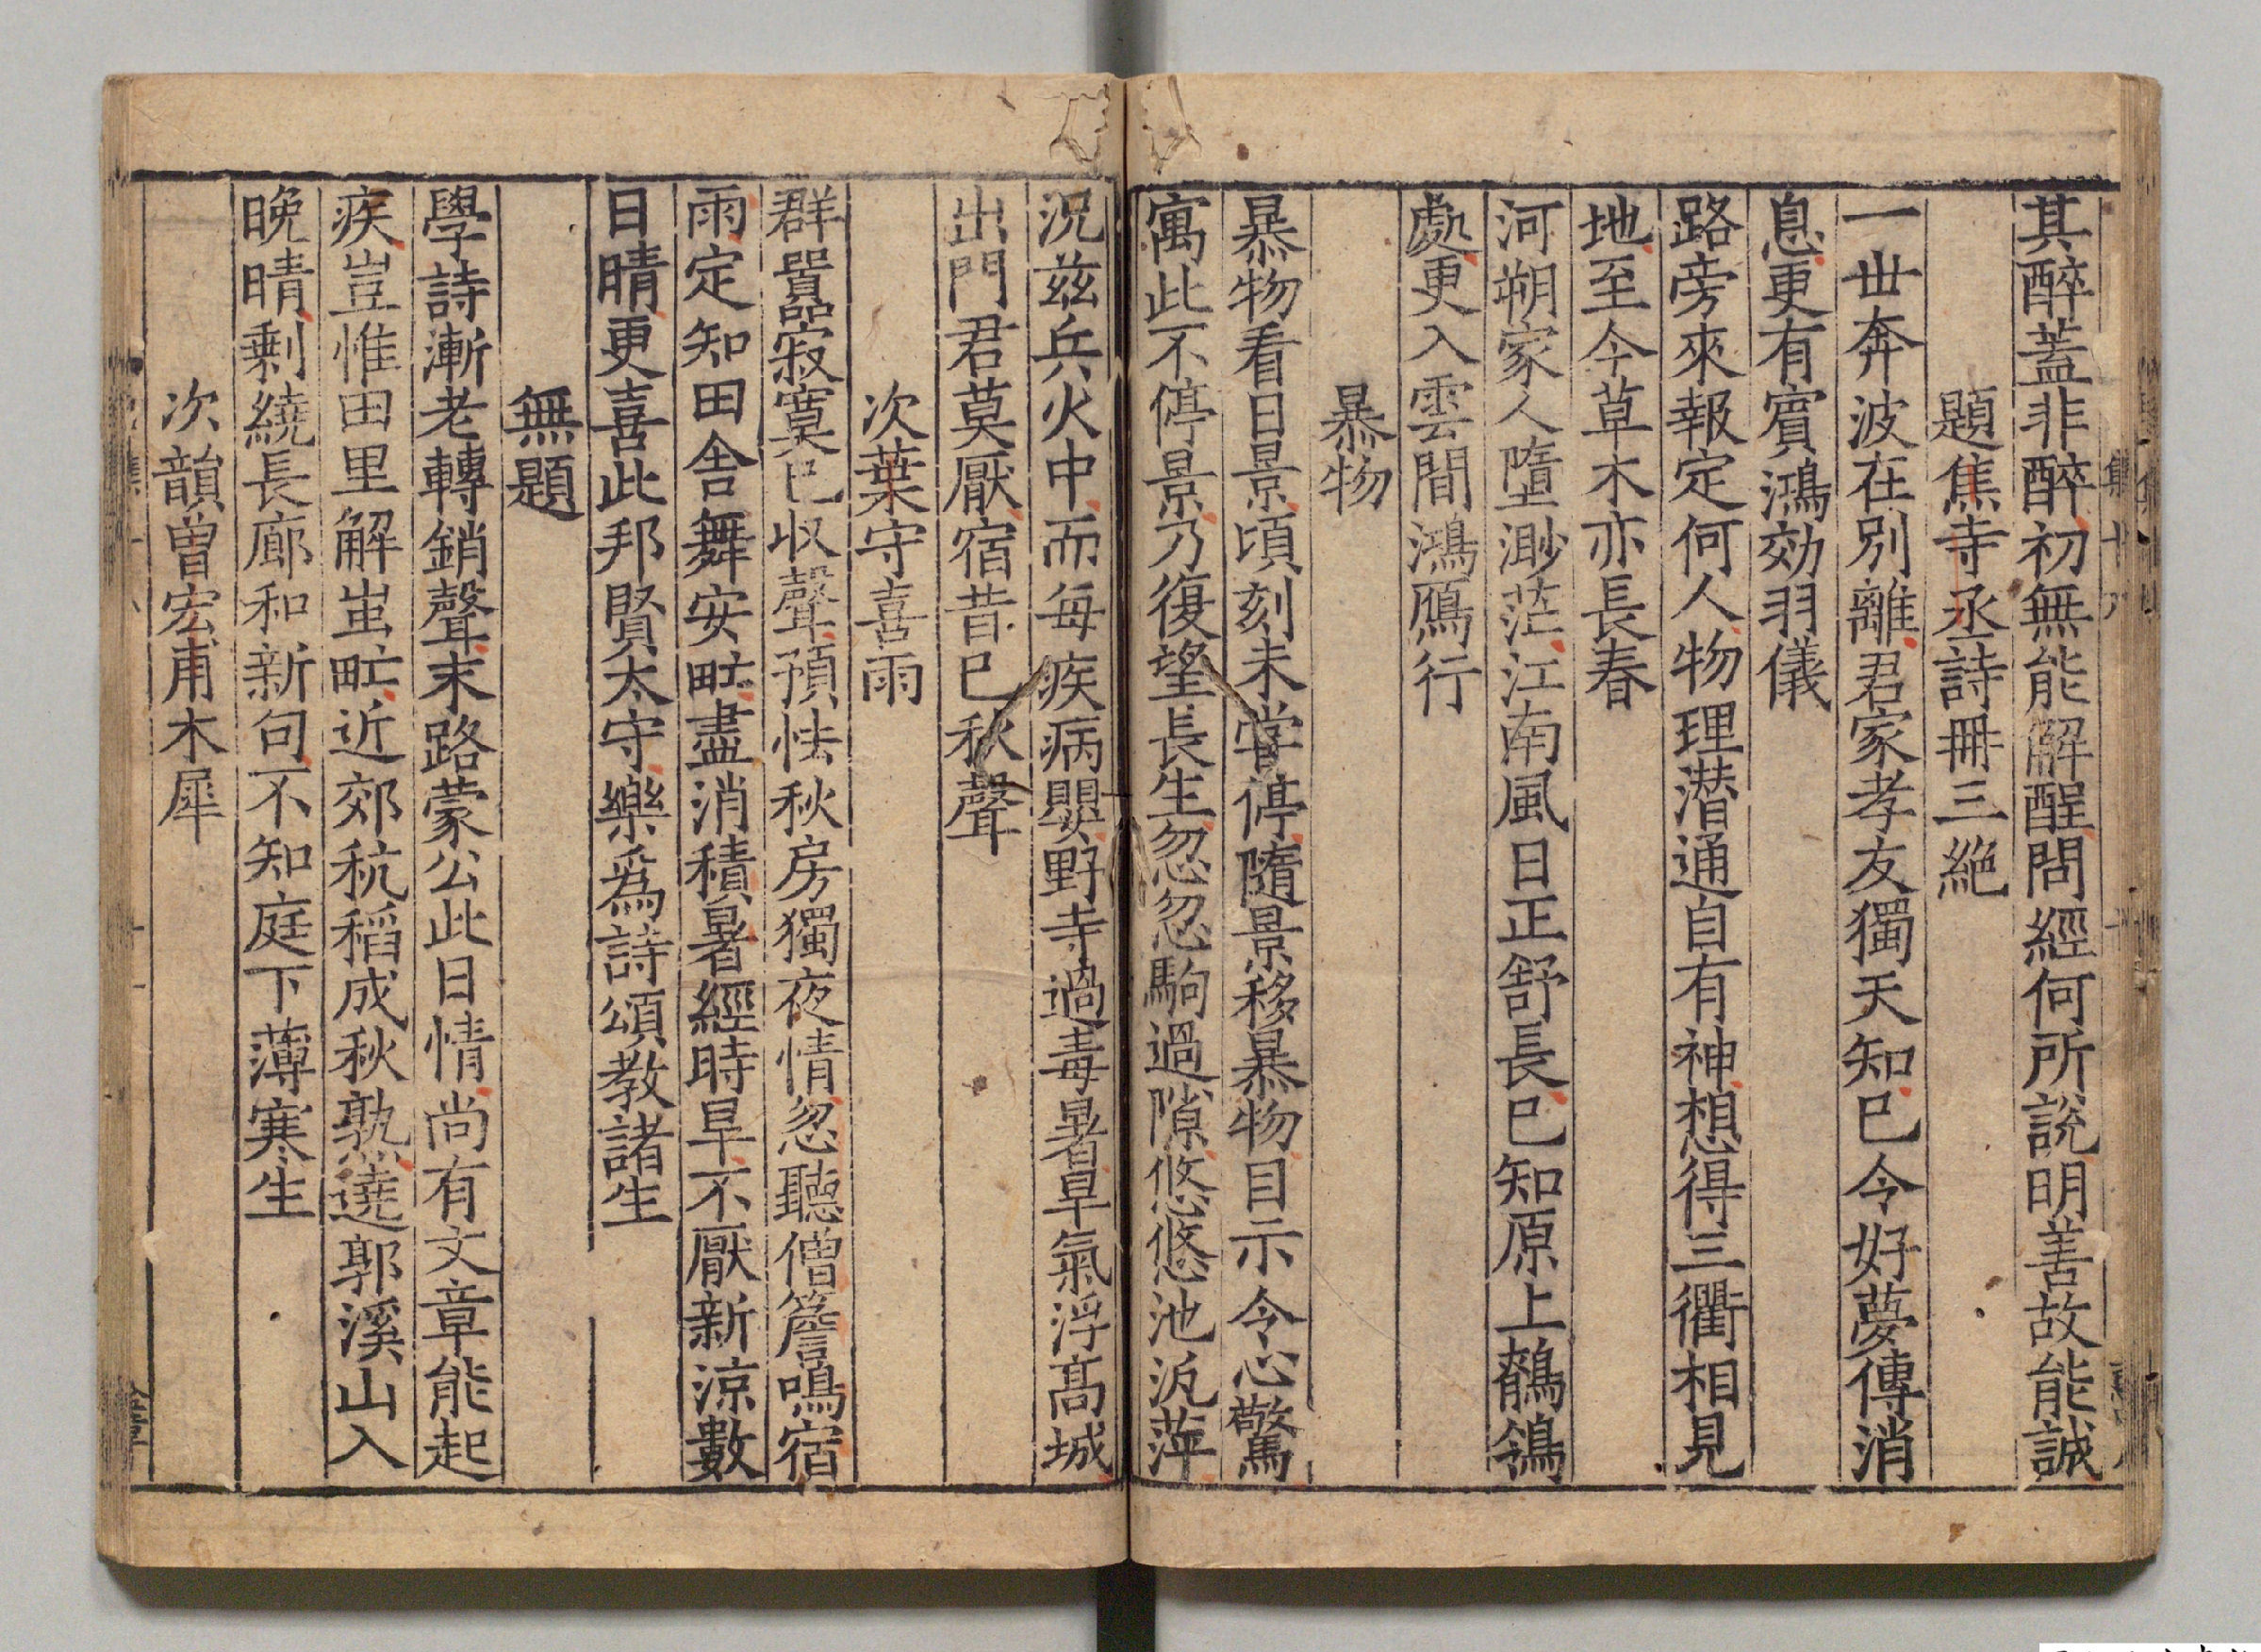 其醉蓋非醉初無能解酲問經何所說明善故能誠
題焦寺丞詩冊三絕
一世奔波在別離君家孝友獨天知已今好夢傳消
息更有賓鴻効羽儀
路旁來報定何人物理潜通自有神想得三衢相見
地至今草木亦長春
河朔家人墮渺茫江南風日正舒長已知原上鶺鴒
處更入雲間鴻鴈行
暴物
暴物看日景頃刻未甞停隨景移暴物目示令心驚
寓此不停景乃復望長生忽忽駒過隙悠悠池泛萍
況兹兵火中而每疾病嬰野寺過毒暑旱氣浮髙城
出門君莫厭宿昔已秋聲
次葉守喜雨
群嚚寂寞已收聲預怯秋房獨夜情忽聽僧簷鳴宿
雨定知田舍舞安甿盡消積暑經時旱不厭新涼數
日晴更喜此邦賢太守樂爲詩頌教諸生
無題
學詩漸老轉銷聲末路蒙公此日情尚有文章能起
疾豈惟田里解蚩甿近郊秔稻成秋熟遶郭溪山入
晚晴剩繞長廊和新句不知庭下薄寒生
次韻曽宏甫木犀